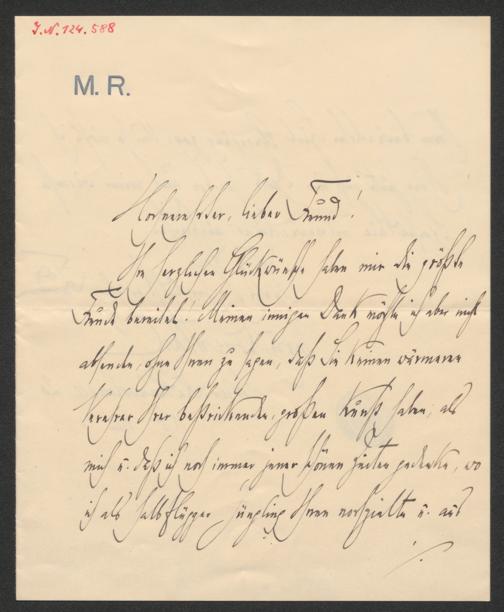 I.N. 124.588
M. R.
Hochverehrter, lieber Freund!
Ihre herzlichen Glückwünsche haben mir die größte
Freude bereitet! Meinen innigen Dank möchte ich aber nicht
absenden, ohne Ihnen zu sagen, daß Sie keinen wärmeren
Verehrer Ihrer bestrickenden, großen Kunst haben, als
mich u. daß ich noch immer jener schönen Zeiten gedenke, wo
ich als halbflügger Jüngling Ihnen vorspielte u. aus